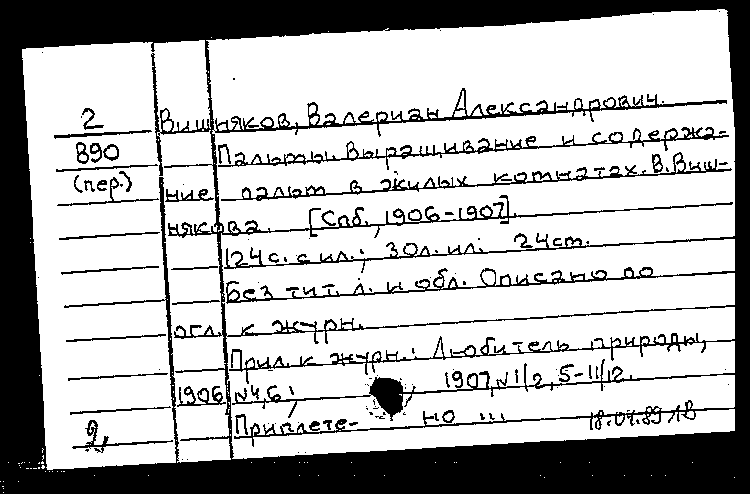 2 Вишняков, Валериан Александрович.
890 Пальмы. Выращивание и содержа-
(пер.) ние пальм в жилых комнатах. В. Виш-
някова. [Спб., 1906-1907].
124 с. с ил.; 30 л. ил. 24 см.
Без тит. л. и обл. Описано по
огл. к журн.
Прил. к журн.: Любитель природы,
1906, №4,6; 1907, №1/2, 5-11/12.
Приплете- но ...
18.04.89